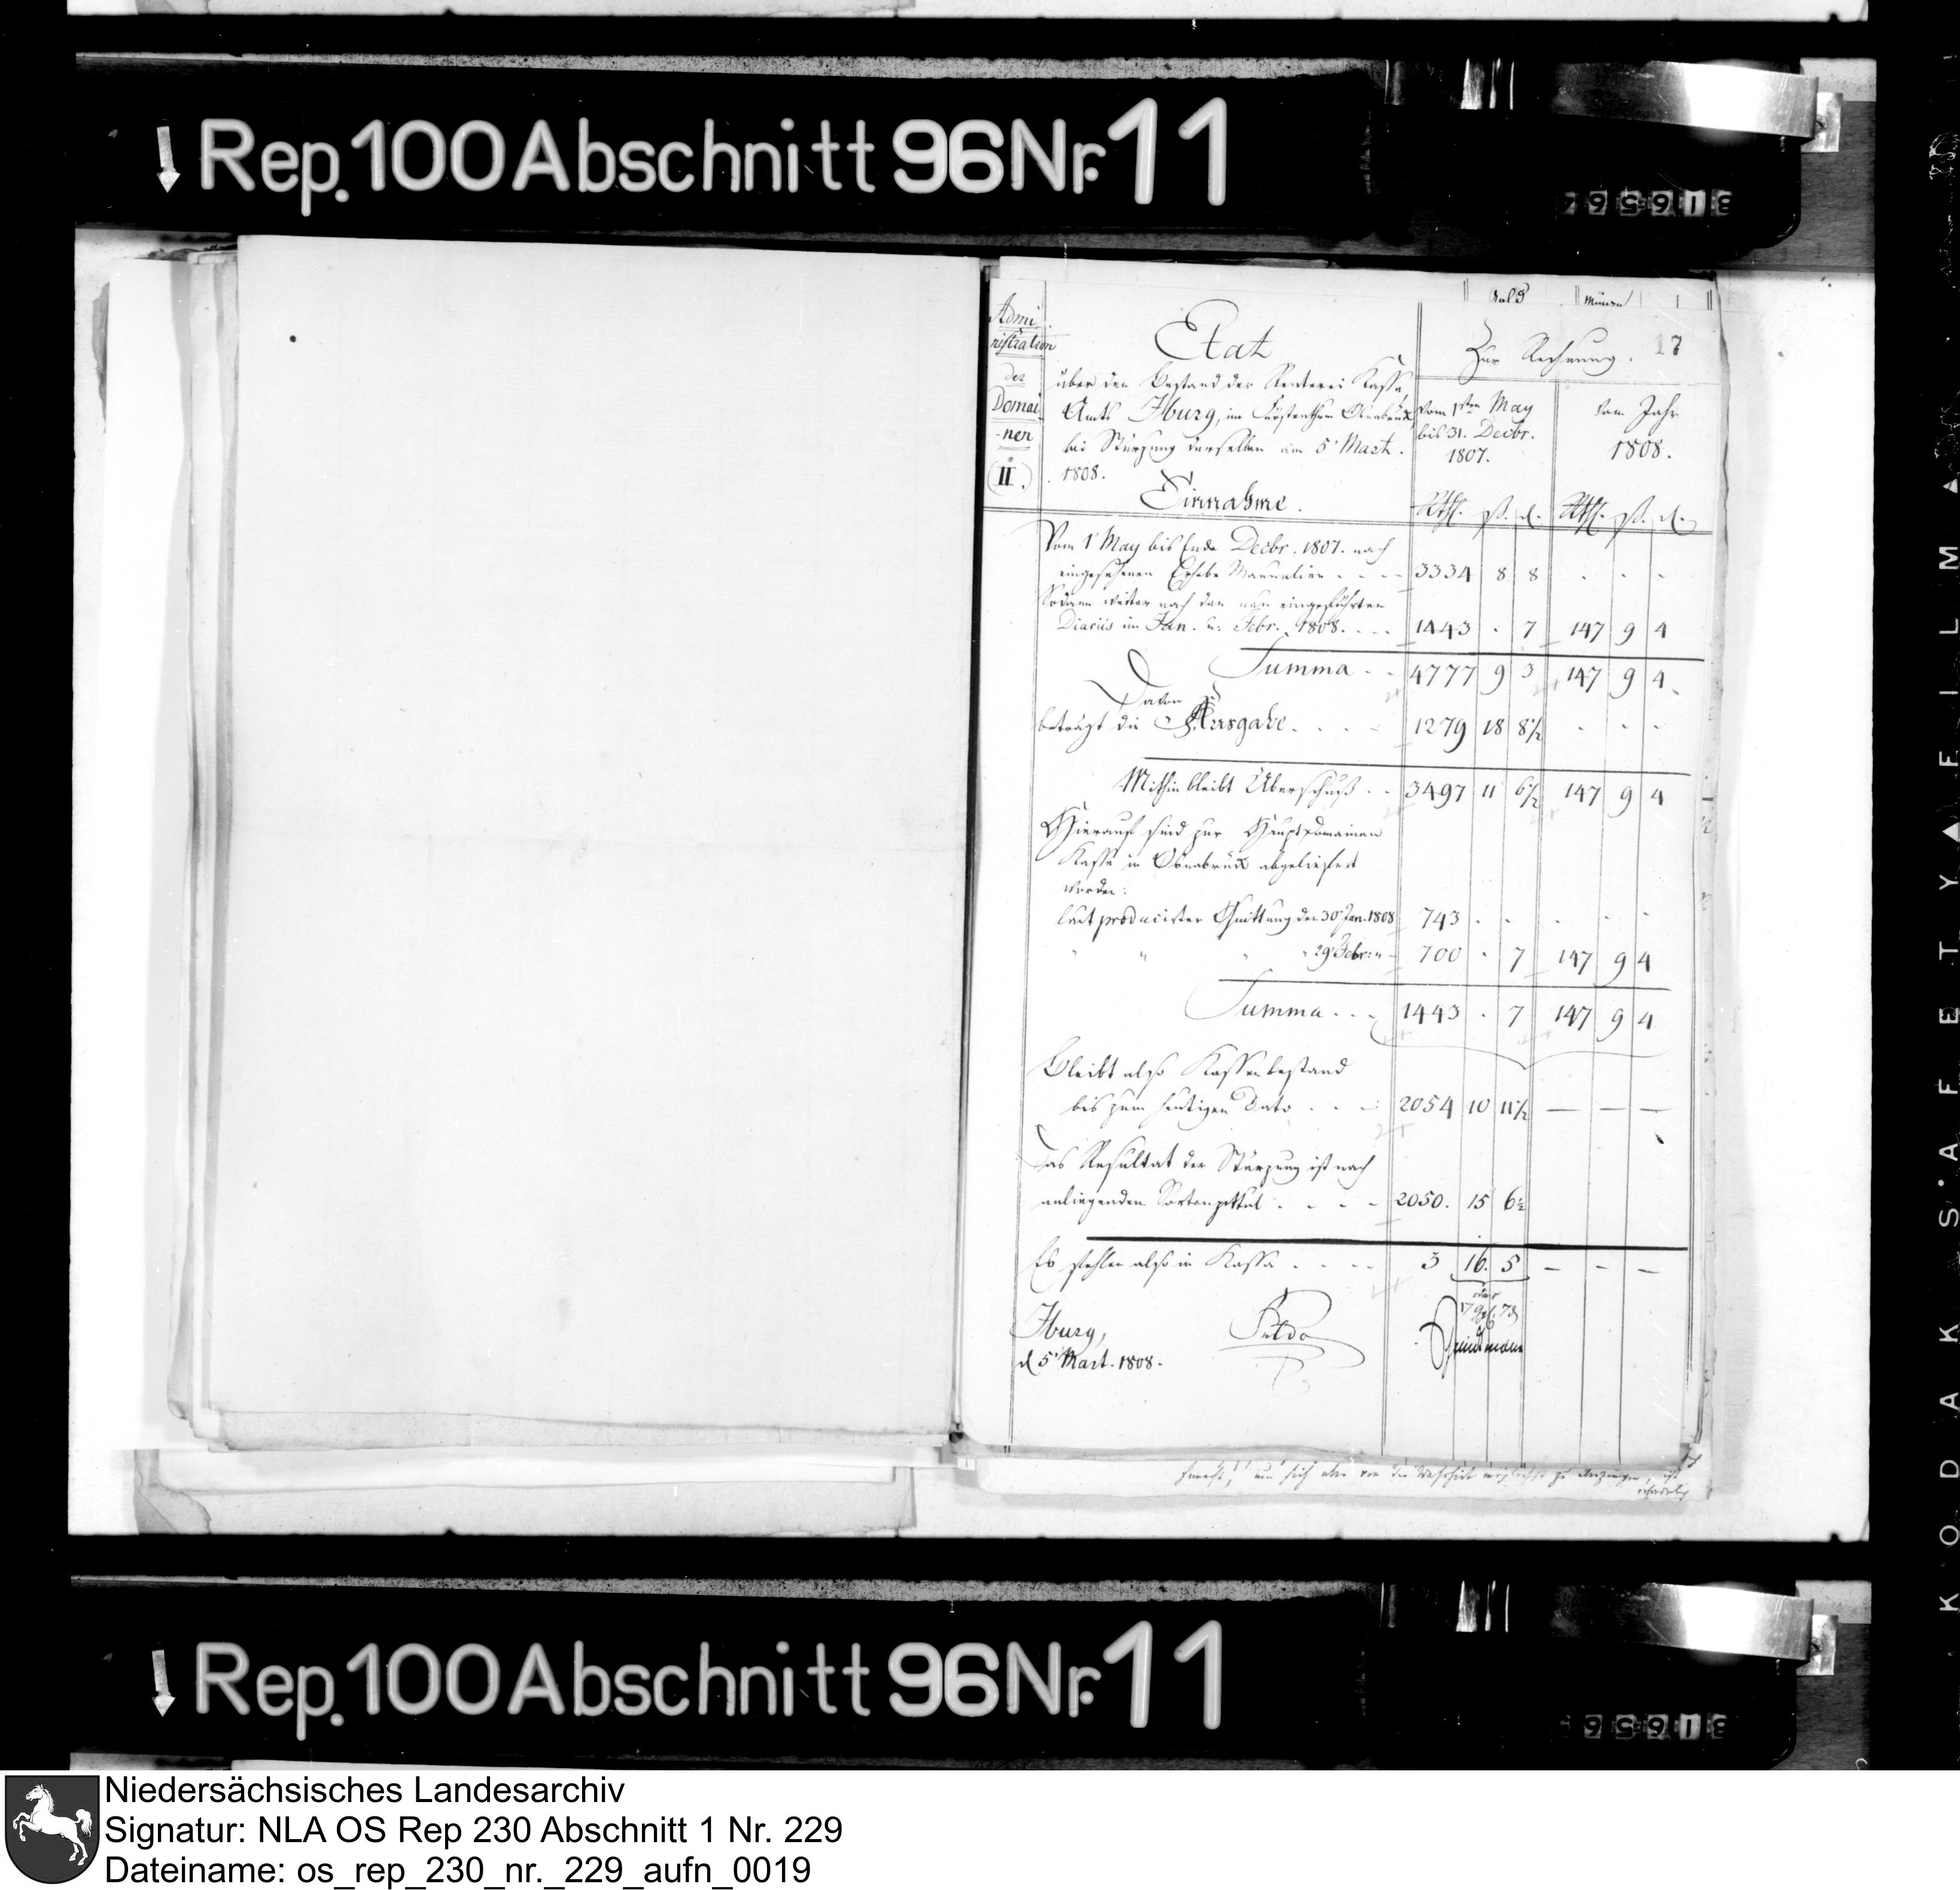 Rep. 100 Abschnitt 96 Nr. 11
316564
Gold Münze
Admi
nistration
der
Domai
-nen
II.
Etat
über den Bestand der Renterei Kasse,
Amts Iburg, im Fürstenthum Osnabrück,
bei Stürzung derselben am 5t Mart.
1808.
Einnahme.
Zur Rechnung. 17
Vom 1sten May
bis 31. Decbr.
1807.
Vom Jahr
1808.
Rthl. ß. d. Rthl. ß. d.
Vom 1t May bis Ende Decbr. 1807. nach
eingesehenen Hebe Manualien . . . . 3334 8 8 . . .
Sodann weiter nach den neu eingeführten
Diariis im Jan. u. Febr. 1808. . . . 1443 . 7 147 9 4
Summa . . 4777 9 3 147 9 4
Davon
beträgt die Ausgabe . . . . 1279 18 8½ . . .
Mithin bleibt Überschuß . . 3497 11 6½ 147 9 4
Hierauf sind zur Haupt Domainen
Kasse in Osnabrück abgeliefert
worden:
laut producirter Quittung den 30t Jan. 1808 743 . . . . .
" " " " 29t Febr: " 700 . 7 147 9 4
Summa . . . 1443 . 7 147 9 4
Bleibt also Kassenbestand
bis zum heutigen Dato . . . 2054 10 11½ — — —
Das Resultat der Stürzung ist nach
anliegenden Sortenzettul . . . . 2050. 15 6½
Es fehlen also in Kassa . . . . 3 16. 5 — — —
oder
Iburg,
d 5t Mart. 1808.
um sich aber von der Wahrheit
KODAK SAFETY FILM
Rep. 100 Abschnitt 96 Nr. 11
Niedersächsisches Landesarchiv
Signatur: NLA OS Rep 230 Abschnitt 1 Nr. 229
Dateiname: os_rep_230_nr._229_aufn_0019